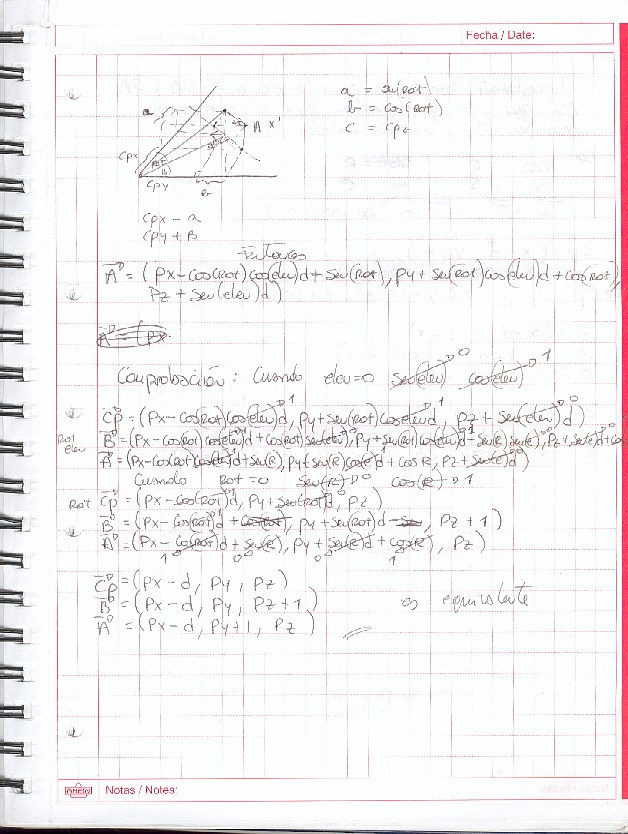 Fecha / Date:
a = sen(Rot)
b = cos(Rot)
c = cpz
a
A x'
Cpx
B
Cpy
b
Cpx - a
Cpy + B
Entonces
A = (Px - cos(Rot) cos(elev)d + sen(Rot), Py + sen(Rot) cos(elev)d + cos(Rot),
Pz + sen(elev)d)
A = (Px
Comprobación: Cuando elev=0 sen(elev) 0 cos(elev) 1
CP = (Px - cos(Rot) cos(elev)d, Py + sen(Rot) cos(elev)d, Pz + sen(elev)d)
Rot elev B = (Px - cos(Rot) cos(elev)d + cos(Rot) sen(elev), Py + sen(Rot) cos(elev)d - sen(R) sen(e), Pz + sen(e)d + cos
A = (Px - cos(Rot) cos(elev)d + sen(R), Py + sen(R) cos(e)d + cos R, Pz + sen(e)d)
Cuando Rot = 0 sen(R) 0 cos(R) 1
Rot CP = (Px - cos(Rot)d, Py + sen(Rot)d, Pz)
B = (Px - cos(Rot)d + cos(Rot), Py + sen(Rot)d - sen, Pz + 1)
A = (Px - cos(Rot)d + sen(R), Py + sen(R)d + cos(R), Pz)
1 0 0 1
CP = (Px - d, Py, Pz)
B = (Px - d, Py, Pz + 1) es equivalente
A = (Px - d, Py + 1, Pz)
RHEIN Notas / Notes: